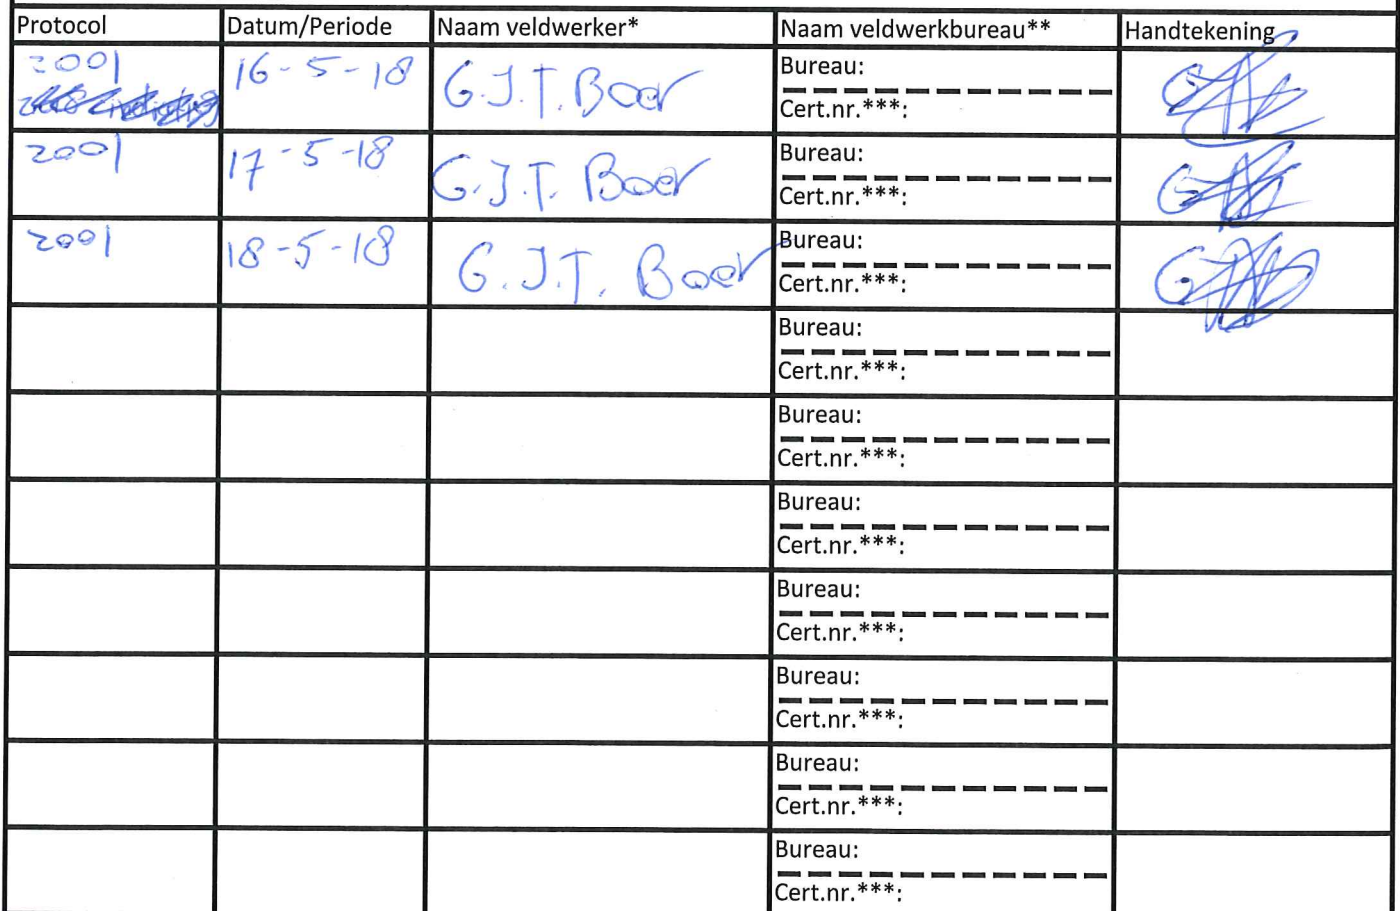 Protocol Datum/Periode Naam veldwerker* Naam veldwerkbureau** Handtekening
2001 16-5-18 G.J.T. Boer Bureau:
Cert.nr.***:
2001 17-5-18 G.J.T. Boer Bureau:
Cert.nr.***:
2001 18-5-18 G.J.T. Boer Bureau:
Cert.nr.***:
Bureau:
Cert.nr.***:
Bureau:
Cert.nr.***:
Bureau:
Cert.nr.***:
Bureau:
Cert.nr.***:
Bureau:
Cert.nr.***:
Bureau:
Cert.nr.***:
Bureau:
Cert.nr.***: